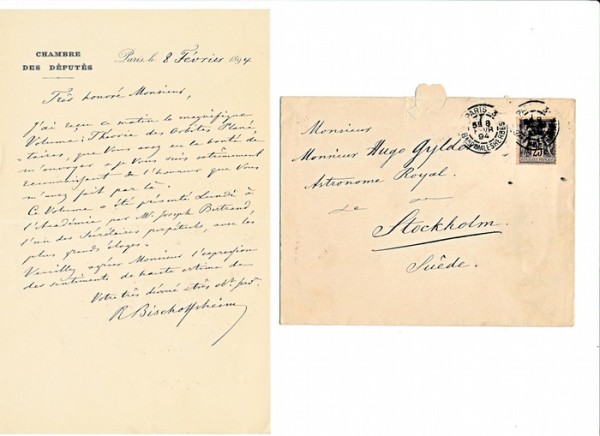 CHAMBRE
DES DÉPUTÉS
Paris, le 8 Février 1894
Très honoré Monsieur,
J'ai reçu ce matin le magnifique
Volume: Théorie des Orbites Plané
taires, que Vous avez eu la bonté de
m'envoyer & je Vous suis extrêmement
reconnaissant de l'honneur que Vous
m'avez fait par là.
Ce Volume a été présenté Lundi à
l'Académie par Mr. Joseph Bertrand,
l'un des Secrétaires perpétuels, avec les
plus grands éloges.
Veuillez agréer Monsieur l'expression
des sentiments de haute estime de
Votre très dévoué
R Bischoffsheim
PARIS
94
BD MALESHERBES
25
Monsieur
Monsieur Hugo Gyldén
Astronome Royal.
Stockholm.
Suède.